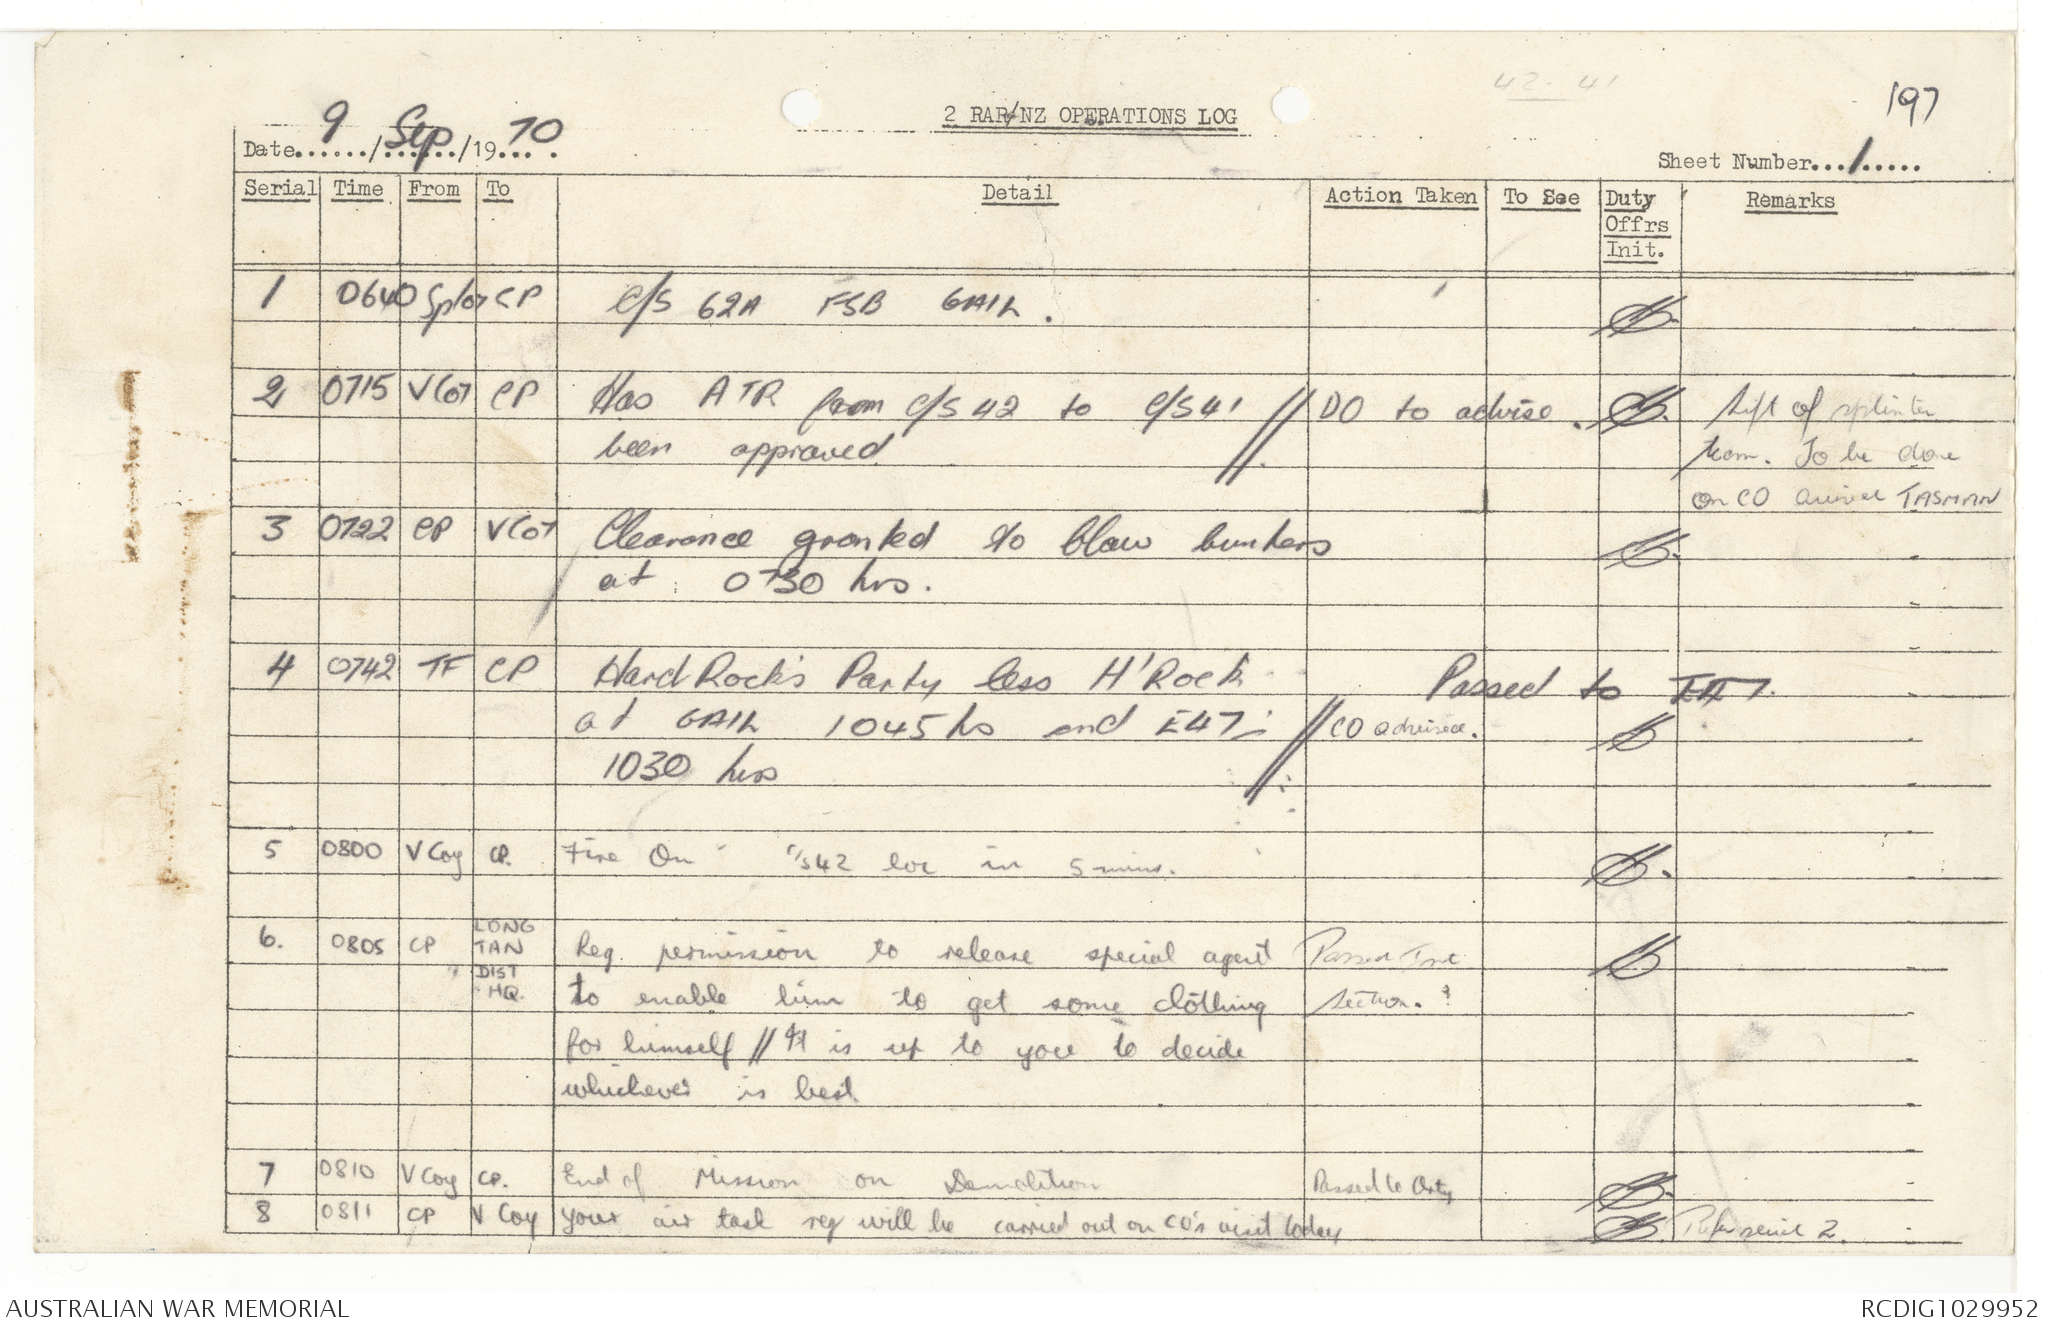 42 - 41
197
2 RAR/NZ OPERATIONS LOG
Date...9.../...Sep.../19...70...
Sheet Number...1.....
Serial Time From To Detail Action Taken To See Duty Offrs Init. Remarks
1 0640 CP C/S 62A FSB GAIL.
2 0715 V Coy CP Has ATR from C/S 42 to C/S 41 // DO to advise. Lift of splinter
been approved team. To be done
on CO arrival TASMAN
3 0722 CP V Coy Clearance granted to blow bunkers
at 0730 hrs.
4 0742 TF CP Hard Rock's Party less H'Rock Passed to
at GAIL 1045 hs and E47 // CO advised.
1030 hrs
5 0800 V Coy CP. Fire On C/S 42 loc in 5 mins.
6. 0805 CP LONG
TAN
DIST
HQ.
Req permission to release special agent Passed Int
to enable him to get some clothing section.
for himself // It is up to you to decide
whichever is best
7 0810 V Coy CP. End of Mission on Demolition Passed to Arty
8 0811 CP V Coy Your air task req will be carried out on CO's visit today Refer serial 2.
AUSTRALIAN WAR MEMORIAL
RCDIG1029952